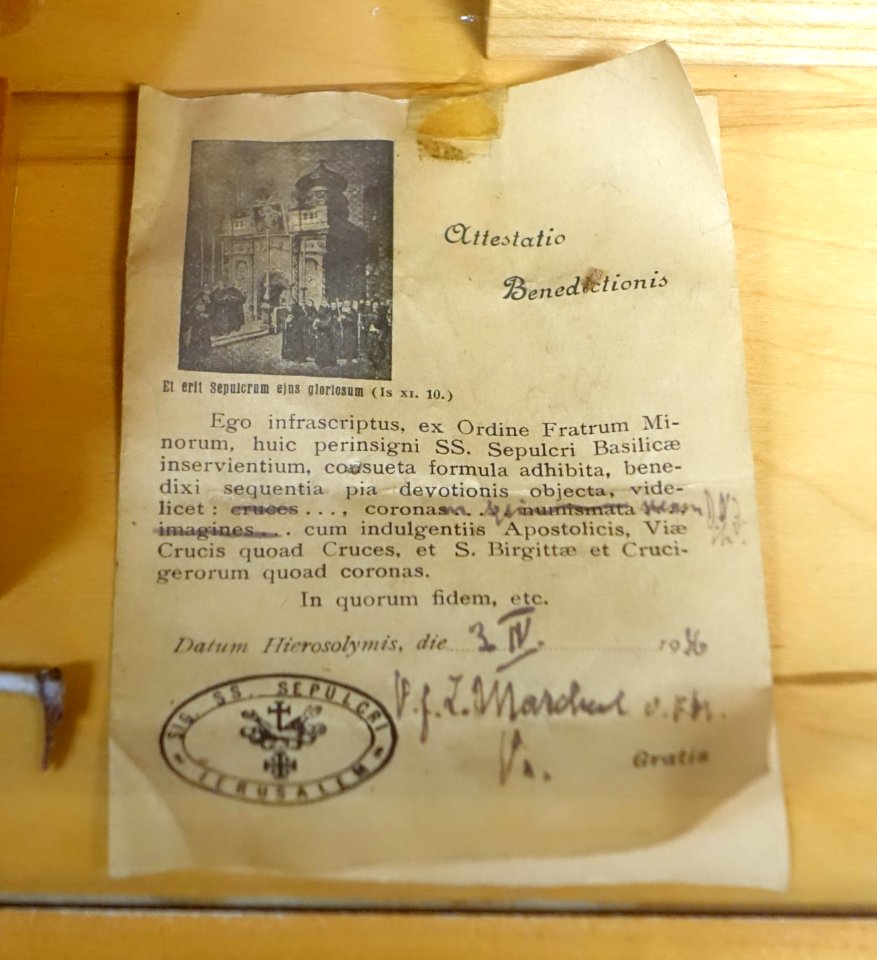 Attestatio
Benedictionis
Et erit Sepulcrum ejus gloriosum (Is XI. 10.)
Ego infrascriptus, ex Ordine Fratrum Mi-
norum, huic perinsigni SS. Sepulcri Basilicæ
inservientium, consueta formula adhibita, bene-
dixi sequentia pia devotionis objecta, vide-
licet : cruces ..., coronas ... numismata
imagines ... cum indulgentiis Apostolicis, Viæ
Crucis quoad Cruces, et S. Birgittæ et Cruci-
gerorum quoad coronas.
In quorum fidem, etc.
Datum Hierosolymis, die 3 IV. 1936
SIG. SS. SEPULCRI
IERUSALEM
Gratis